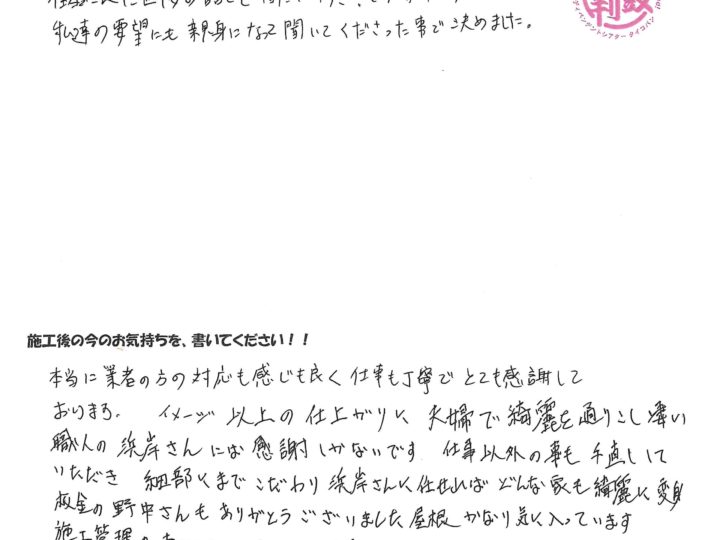 私達の要望にも親身になって聞いてくださった事で決めました。
施工後の今のお気持ちを、書いてください！！
本当に業者の方の対応も感じも良く仕事も丁寧でとても感謝して
おります。 イメージ以上の仕上がりに夫婦で綺麗を通りこし凄い
職人の浜岸さんには感謝しかないです 仕事以外の事も手直しして
いただき 細部にまでこだわり浜岸さんに任せればどんな家も綺麗に変身
板金の野中さんもありがとうございました屋根かなり気に入っています
施工管理の